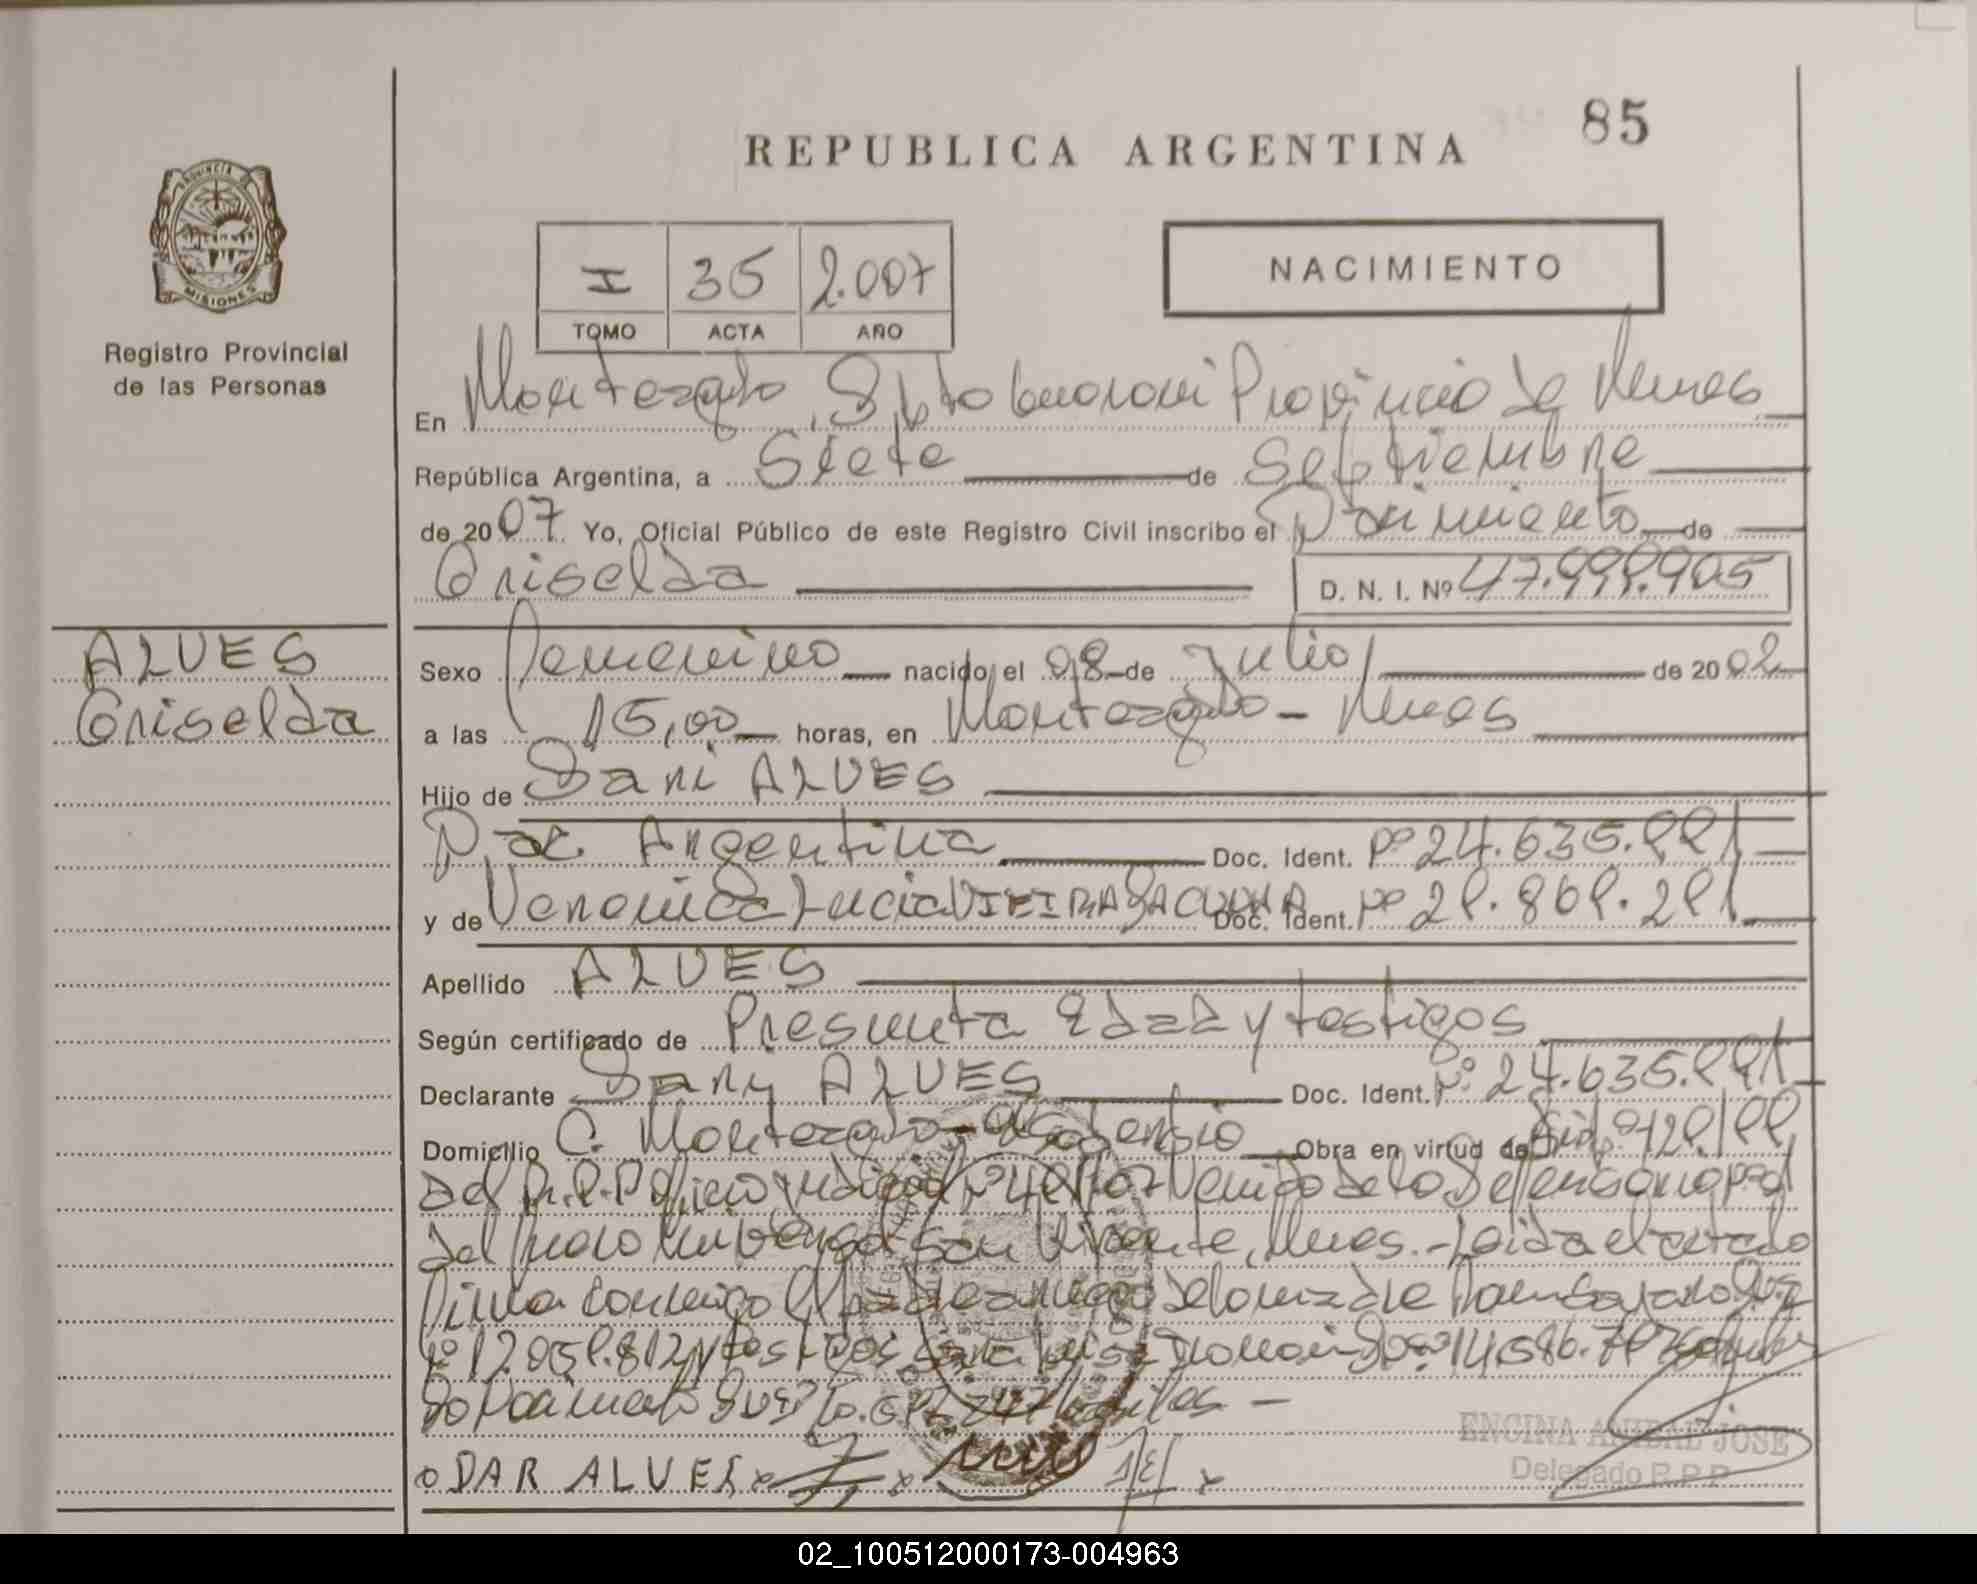 85
REPUBLICA ARGENTINA
PROVINCIA DE
MISIONES
Registro Provincial
de las Personas
I 35 2.007
TOMO ACTA AÑO
NACIMIENTO
En Monteagudo, Dpto Guarani Provincia de Mnes
República Argentina, a Siete de Septiembre
de 2007 Yo, Oficial Público de este Registro Civil inscribo el Nacimiento de
Griselda D. N. I. Nº 47.999.905
ALVES
Griselda
Sexo Femenino nacido el 08 de Julio de 2002
a las 15,00 horas, en Monteagudo - Mnes
Hijo de Dani ALVES
Nac. Argentina Doc. Ident. Nº 24.635.991
y de Veronica Lucia VIEIRA DA CUNHA Doc. Ident. Nº 29.869.291
Apellido ALVES
Según certificado de Presunta Edad y testigos
Declarante Dany ALVES Doc. Ident. Nº 24.635.991
Domicilio C. Monteagudo Obra en virtud de
del R.P.P Oficio Judicial Venido de la Defensoria
del San Vicente, Mnes. - Leida el acta
Firma conmigo El padre de la madre
Nº y testigos
ODAR ALVES
ENCINA ANIBAL JOSE
Delegado R.P.P.
02_100512000173-004963